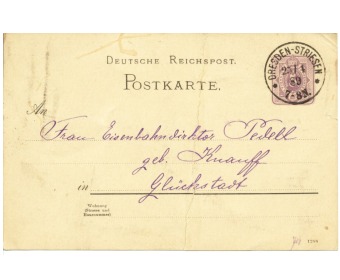 DEUTSCHE REICHSPOST.
POSTKARTE.
DRESDEN-STRIESEN
An
Frau Eisenbahndirektor Pedell
geb. Knauff
in Glückstadt
Wohnung
(Strasse und
Hausnummer)